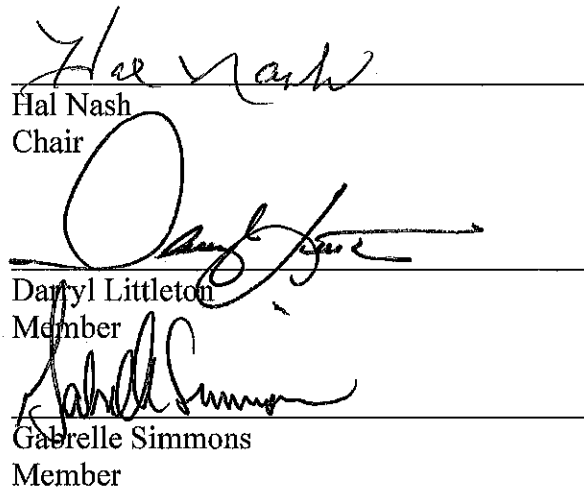 Hal Nash
Hal Nash
Chair
Darryl Littleton
Member
Gabrelle Simmons
Gabrelle Simmons
Member